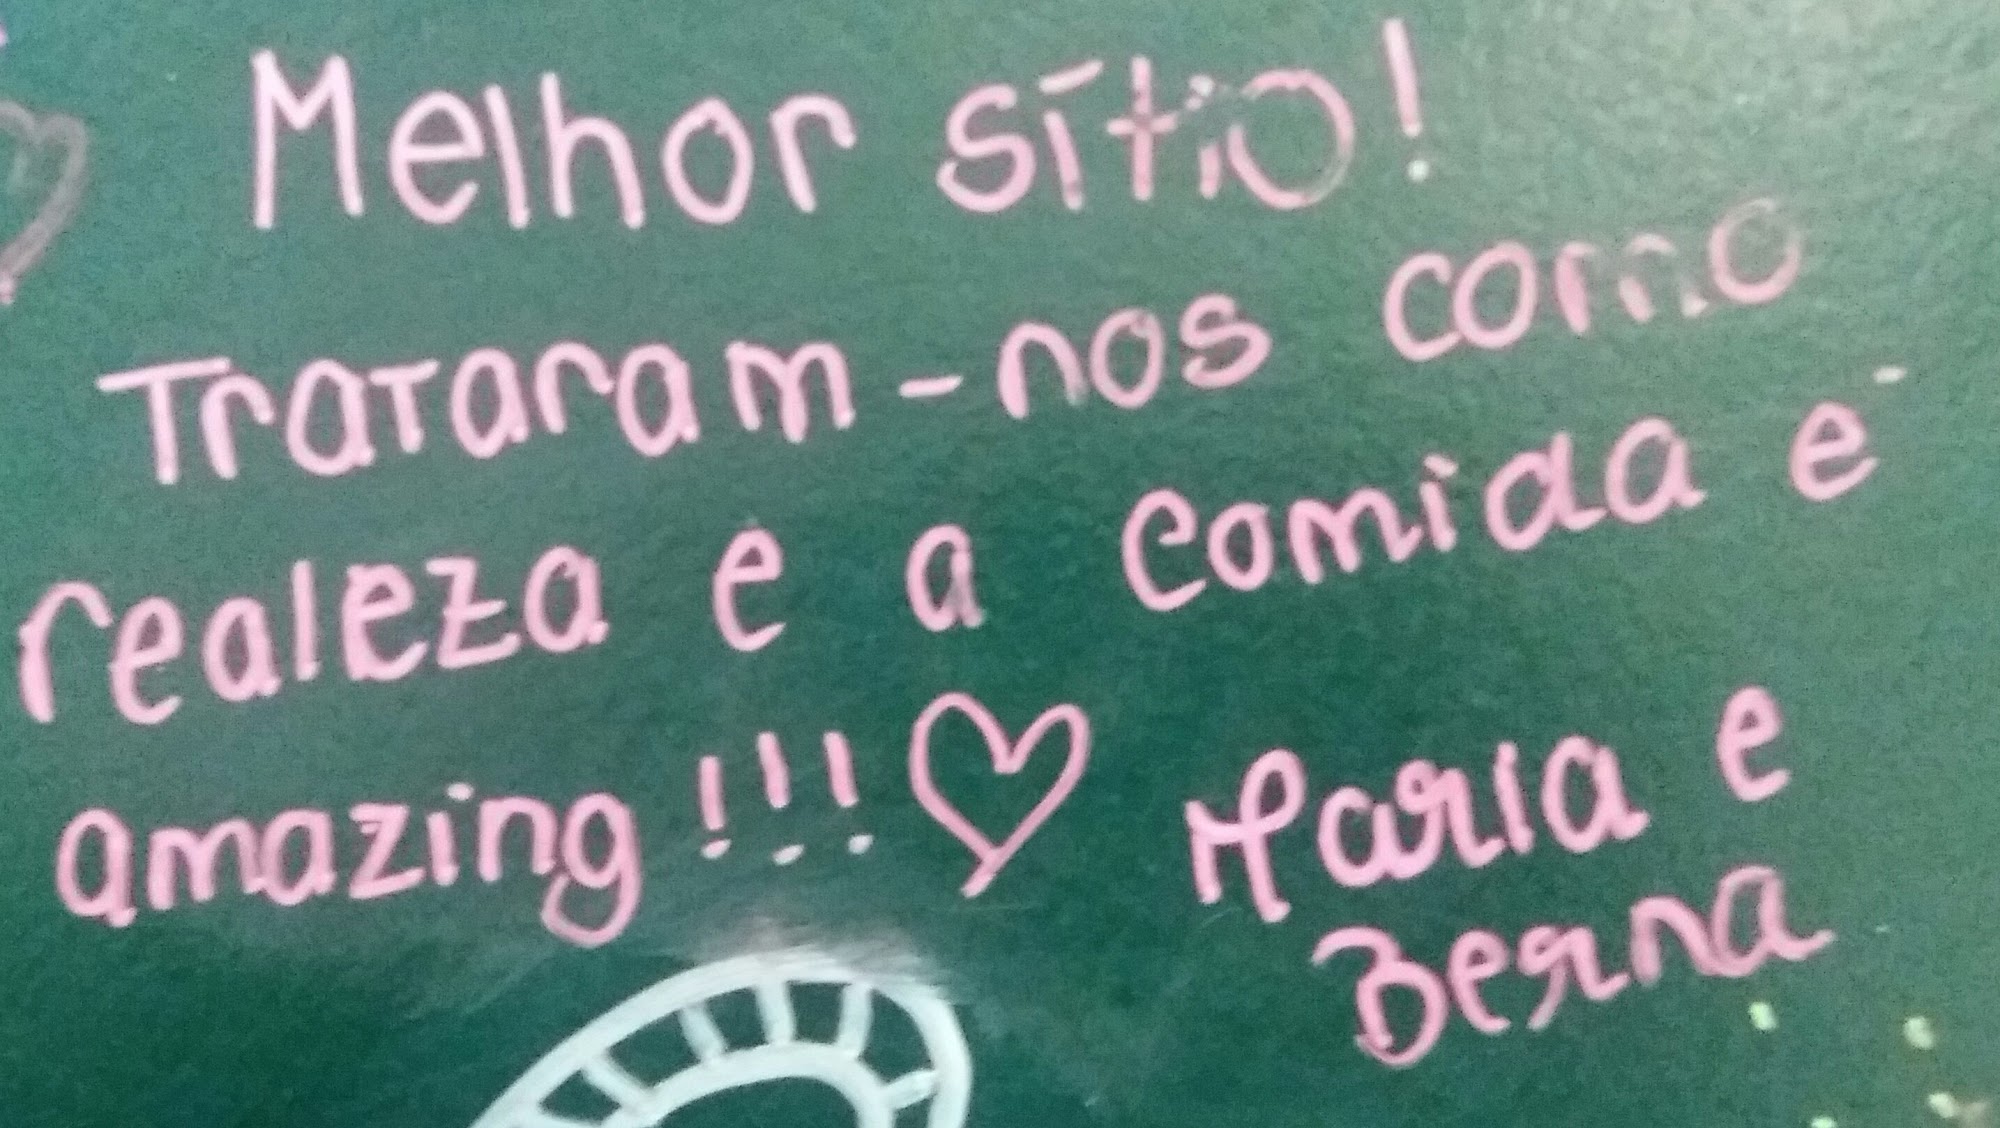 Melhor sítio!
Trataram-nos como
realeza e a comida é
amazing!!! ♡ Maria e
Berna